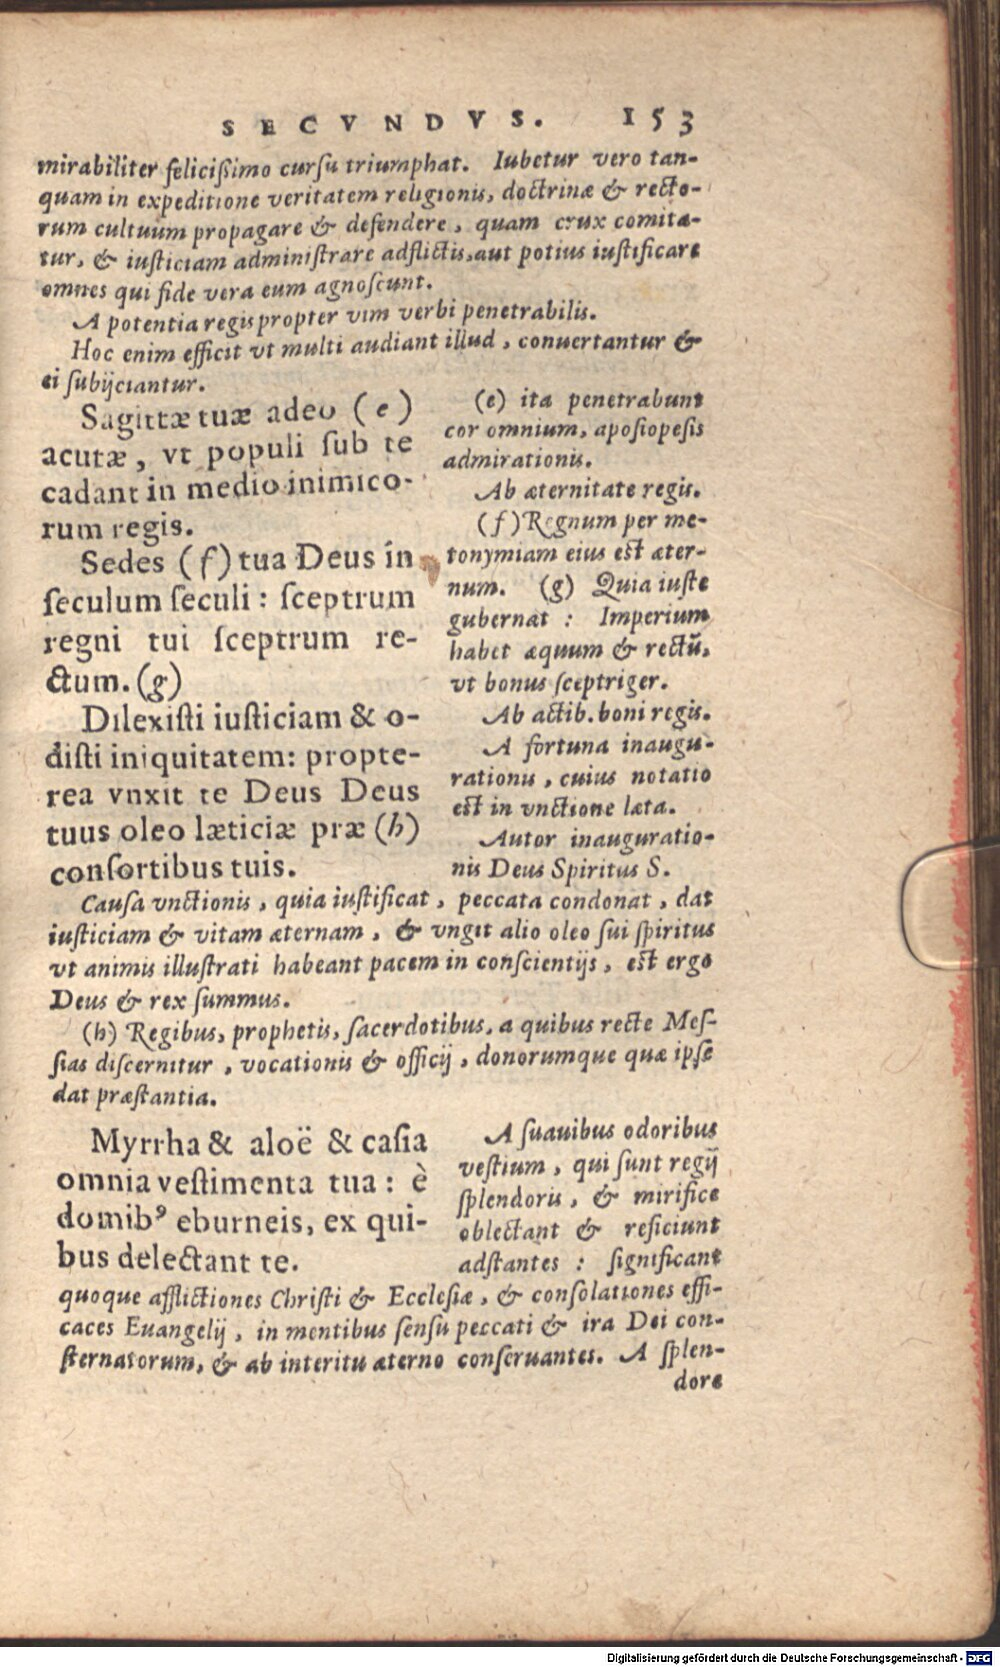 SECVNDVS. 153
mirabiliter feliciſſimo curſu triumphat. Iubetur vero tan-
quam in expeditione veritatem religionis, doctrinæ & recto-
rum cultuum propagare & defendere, quam crux comita-
tur, & iuſticiam adminiſtrare adflictis, aut potius iuſtificare
omnes qui fide vera eum agnoſcunt.
A potentia regis propter vim verbi penetrabilis.
Hoc enim efficit vt multi audiant illud, conuertantur &
ei ſubijciantur.
Sagittæ tuæ adeo (e)
acutæ, vt populi ſub te
cadant in medio inimico-
rum regis.
Sedes (f) tua Deus in
ſeculum ſeculi: ſceptrum
regni tui ſceptrum re-
ctum. (g)
Dilexiſti iuſticiam & o-
diſti iniquitatem: propte-
rea vnxit te Deus Deus
tuus oleo læticiæ præ (h)
conſortibus tuis.
(e) ita penetrabunt
cor omnium, apoſiopeſis
admirationis.
Ab æternitate regis.
(f) Regnum per me-
tonymiam eius eſt æter-
num. (g) Quia iuſte
gubernat: Imperium
habet æquum & rectũ,
vt bonus ſceptriger.
Ab actib. boni regis.
A fortuna inaugu-
rationis, cuius notatio
eſt in vnctione læta.
Autor inauguratio-
nis Deus Spiritus S.
Cauſa vnctionis, quia iuſtificat, peccata condonat, dat
iuſticiam & vitam æternam, & vngit alio oleo ſui ſpiritus
vt animis illuſtrati habeant pacem in conſcientijs, eſt ergo
Deus & rex ſummus.
(h) Regibus, prophetis, ſacerdotibus, a quibus recte Meſ-
ſias diſcernitur, vocationis & officij, donorumque quæ ipſe
dat præſtantia.
Myrrha & aloë & caſia
omnia veſtimenta tua: è
domibꝰ eburneis, ex qui-
bus delectant te.
A ſuauibus odoribus
veſtium, qui ſunt regij
ſplendoris, & mirifice
oblectant & reficiunt
adſtantes: ſignificant
quoque afflictiones Chriſti & Eccleſiæ, & conſolationes effi-
caces Euangelij, in mentibus ſenſu peccati & ira Dei con-
ſternatorum, & ab interitu æterno conſeruantes. A ſplen-
dore
Digitalisierung gefördert durch die Deutsche Forschungsgemeinschaft - DFG